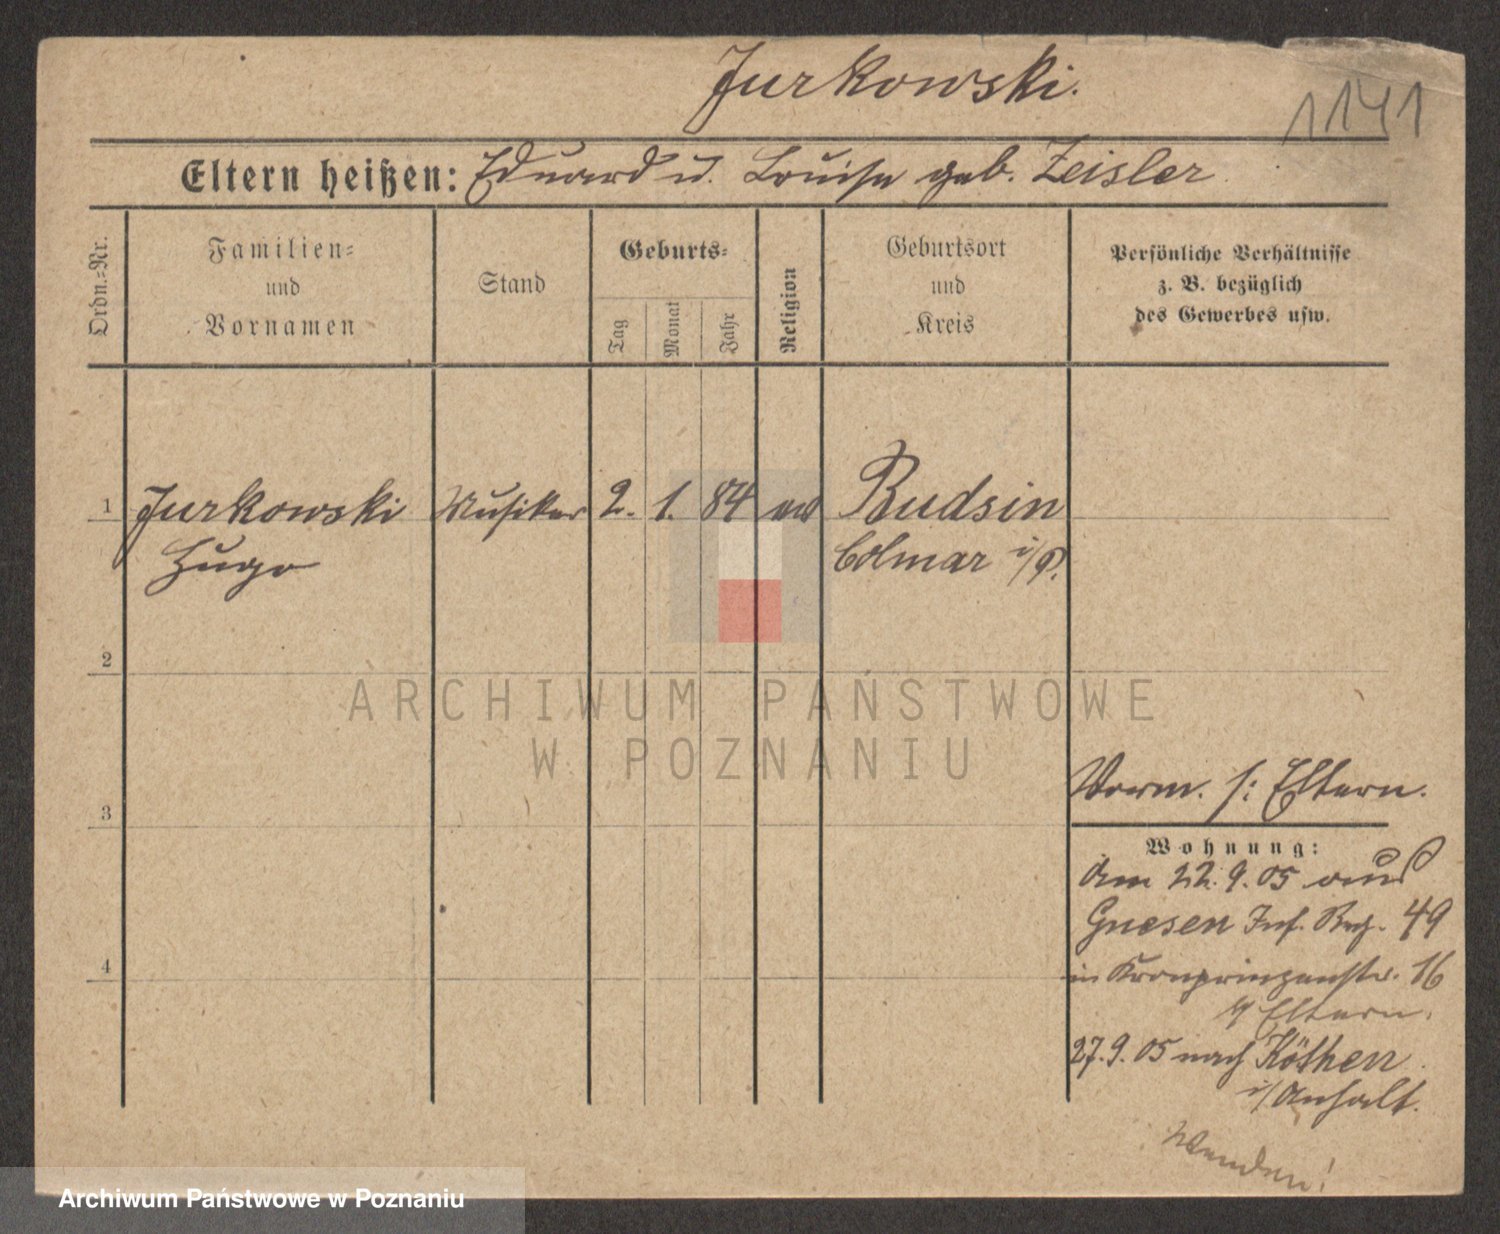 Jurkowski.
1141
Eltern heißen: Eduard u. Louise geb. Zeisler
Ordn.=Nr.
Familien=
und
Vornamen
Stand
Geburts=
Tag
Monat
Jahr
Religion
Geburtsort
und
Kreis
Persönliche Verhältnisse
z. B. bezüglich
des Gewerbes usw.
1 Jurkowski Musiker 2. 1. 84 ev Budsin
Hugo Colmar i/P.
2
ARCHIWUM PAŃSTWOWE
W POZNANIU
Vorm. s: Eltern.
3
Wohnung:
Am 22. 9. 05 aus
Gnesen Inf. Reg. 49
4
in Kronprinzenstr. 16
b/ Eltern.
27. 9. 05 nach Köthen
i/Anhalt.
Wenden!
Archiwum Państwowe w Poznaniu